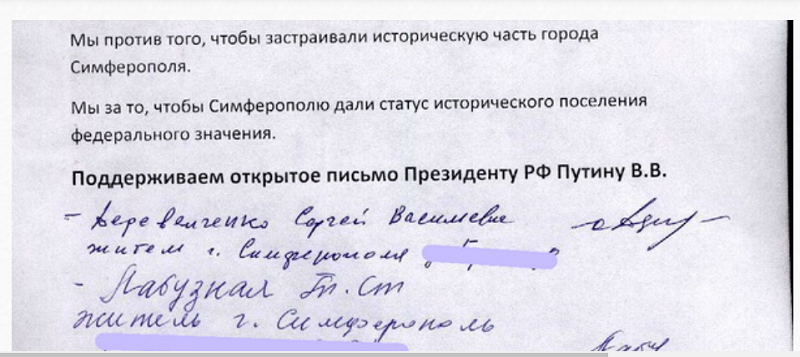 Мы против того, чтобы застраивали историческую часть города
Симферополя.
Мы за то, чтобы Симферополю дали статус исторического поселения
федерального значения.
Поддерживаем открытое письмо Президенту РФ Путину В.В.
- Деревенченко Сергей Василиевич
жител г. Симферополя
- Лабузная Гл. Ст
житель г. Симферополь